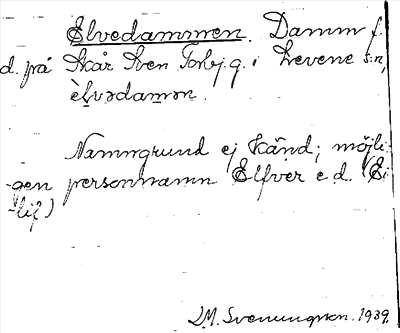 Elvedammen. Damm f.
d. på Skår Sven Torbj.g. i Levene s:n,
èl̬vədam̬ən.
Namngrund ej känd; möjli-
gen personnamn Elfver e.d. (Ei-
lif)
J.M. Svenungson. 1939.